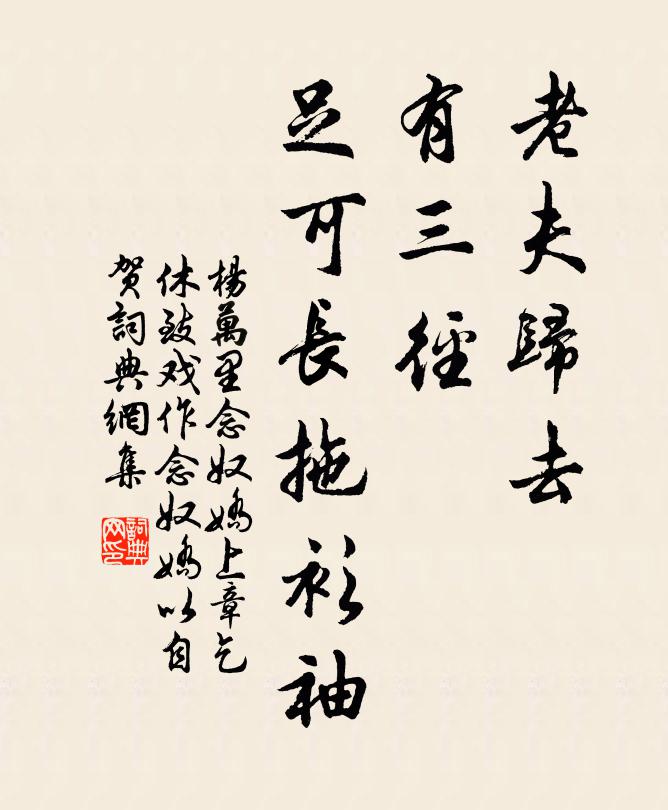 老夫歸去
有三徑
足可長拖衫袖
楊萬里念奴嬌上章乞
休致戏作念奴嬌以自
贺詞典網集
詞典网印